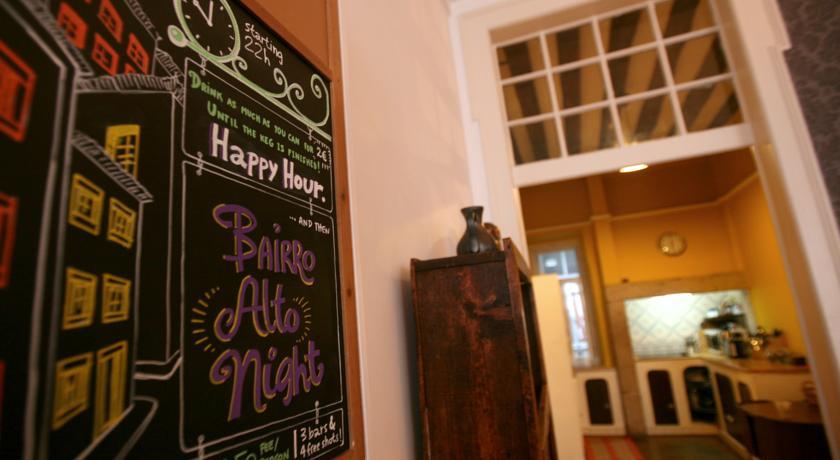 starting
22h
DRINK AS MUCH AS YOU CAN FOR 2€
UNTIL THE KEG IS FINISHED!
Happy Hour.
... AND THEN
BAIRRO
Alto
Night
FEE/
3 bars &
4 free shots!